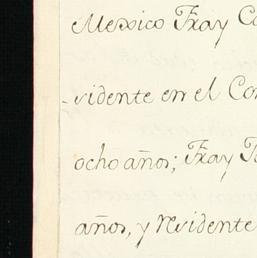 Mexico Fray
-sidente en el
ocho años; Fray
años, y Residente